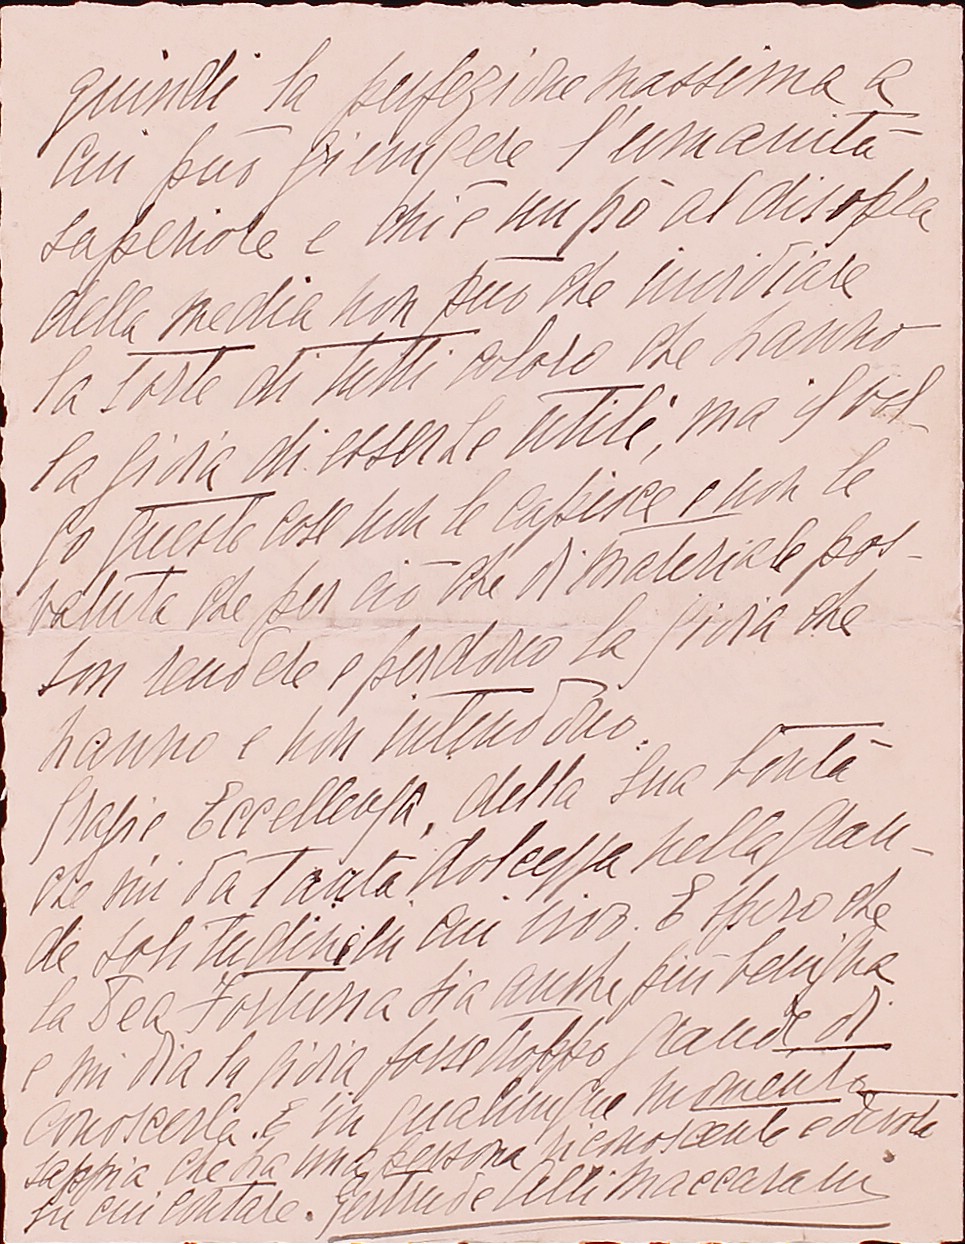 quindi la perfezione massima a
cui può giungere l'umanità
superiore e chi è un pò al disopra
della media non può che invidiare
la sorte di tutti coloro che hanno
la gioia di esserle utili, ma il vol-
go queste cose non le capisce e non le
valuta che per ciò che di materiale pos-
son rendere e perdono la gioia che
hanno e non intendono.
Grazie Eccellenza, della sua bontà
che mi dà tanta dolcezza nella gran-
de solitudine in cui vivo. E spero che
la Dea Fortuna sia anche più benigna
e mi dia la gioia forse troppo grande di
conoscerla. E in qualunque momento
sappia che ha una persona riconoscente e devota
su cui contare. Gertrude Maccarani